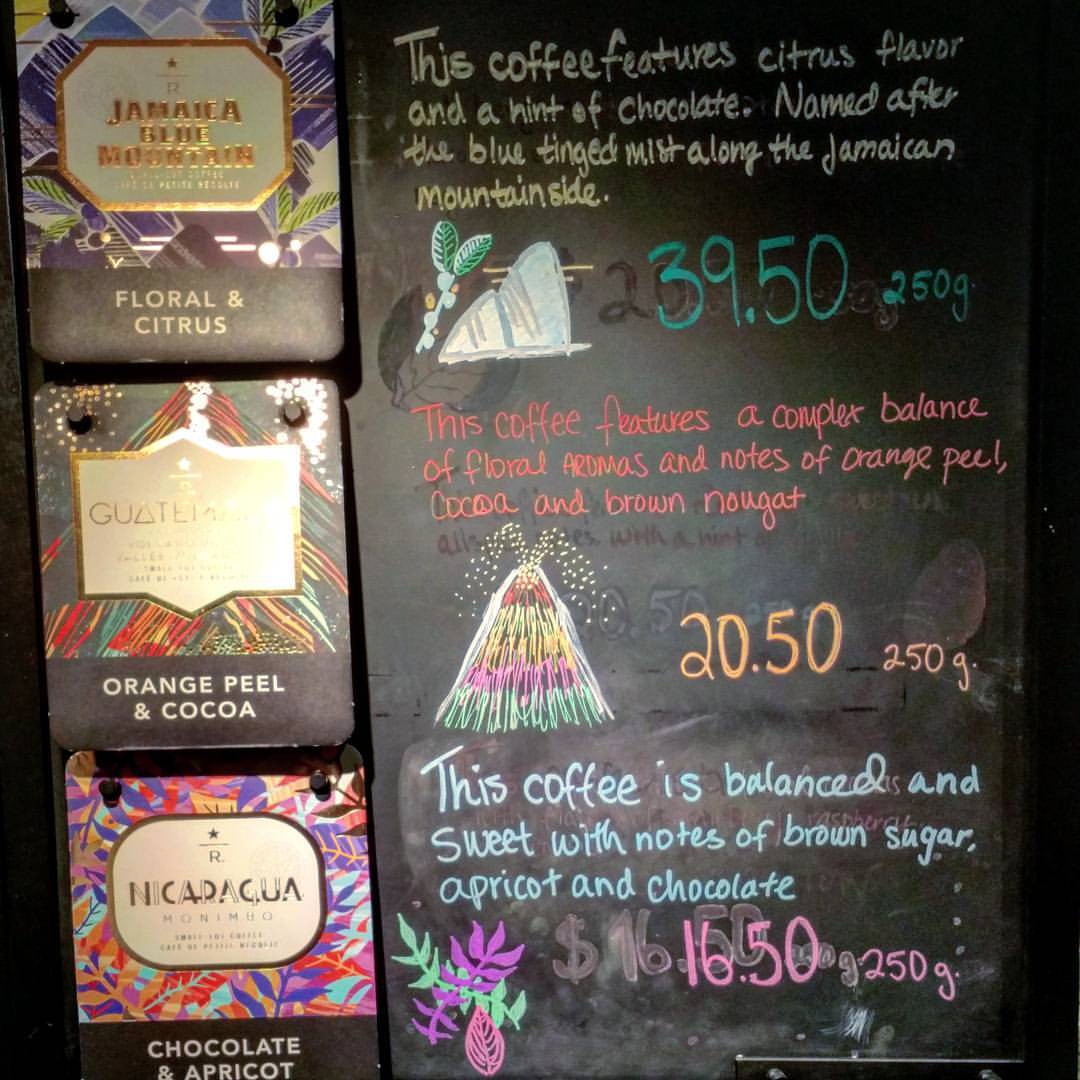 R
JAMAICA
BLUE
MOUNTAIN
CAFÉ DE PETITE RÉCOLTE
FLORAL &
CITRUS
This coffee features citrus flavor
and a hint of chocolate. Named after
the blue tinged mist along the Jamaican
mountainside.
39.50 250g
R.
SMALL-LOT COFFEE
ORANGE PEEL
& COCOA
This coffee features a complex balance
of floral AROMAS and notes of orange peel,
Cocoa and brown nougat
with a hint of
20.50
20.50 250 g.
R.
NICARAGUA
MONIMBO
SMALL-LOT COFFEE
CAFÉ DE PETITE RÉCOLTE
CHOCOLATE
& APRICOT
This coffee is balanced and
Sweet with notes of brown sugar,
raspberry
apricot and chocolate
$ 16.50
16.50 250 g.